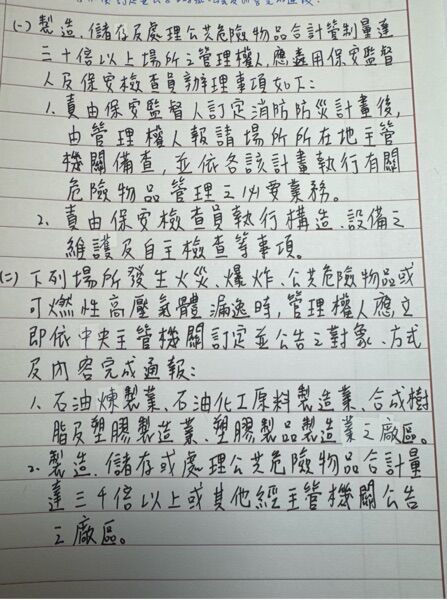 (一) 製造、儲存及處理公共危險物品合計管制量達
三十倍以上場所之管理權人,應遴用保安監督
人及保安檢查員辦理事項如下:
1. 責由保安監督人訂定消防防災計畫後,
由管理權人報請場所所在地主管
機關備查,並依各該計畫執行有關
危險物品管理之必要業務。
2. 責由保安檢查員執行構造、設備之
維護及自主檢查等事項。
(二) 下列場所發生火災、爆炸、公共危險物品或
可燃性高壓氣體漏逸時,管理權人應立
即依中央主管機關訂定並公告之對象、方式
及內容完成通報:
1、石油煉製業、石油化工原料製造業、合成樹
脂及塑膠製造業、塑膠製品製造業之廠區。
2、製造、儲存或處理公共危險物品合計量
達三千倍以上或其他經主管機關公告
之廠區。